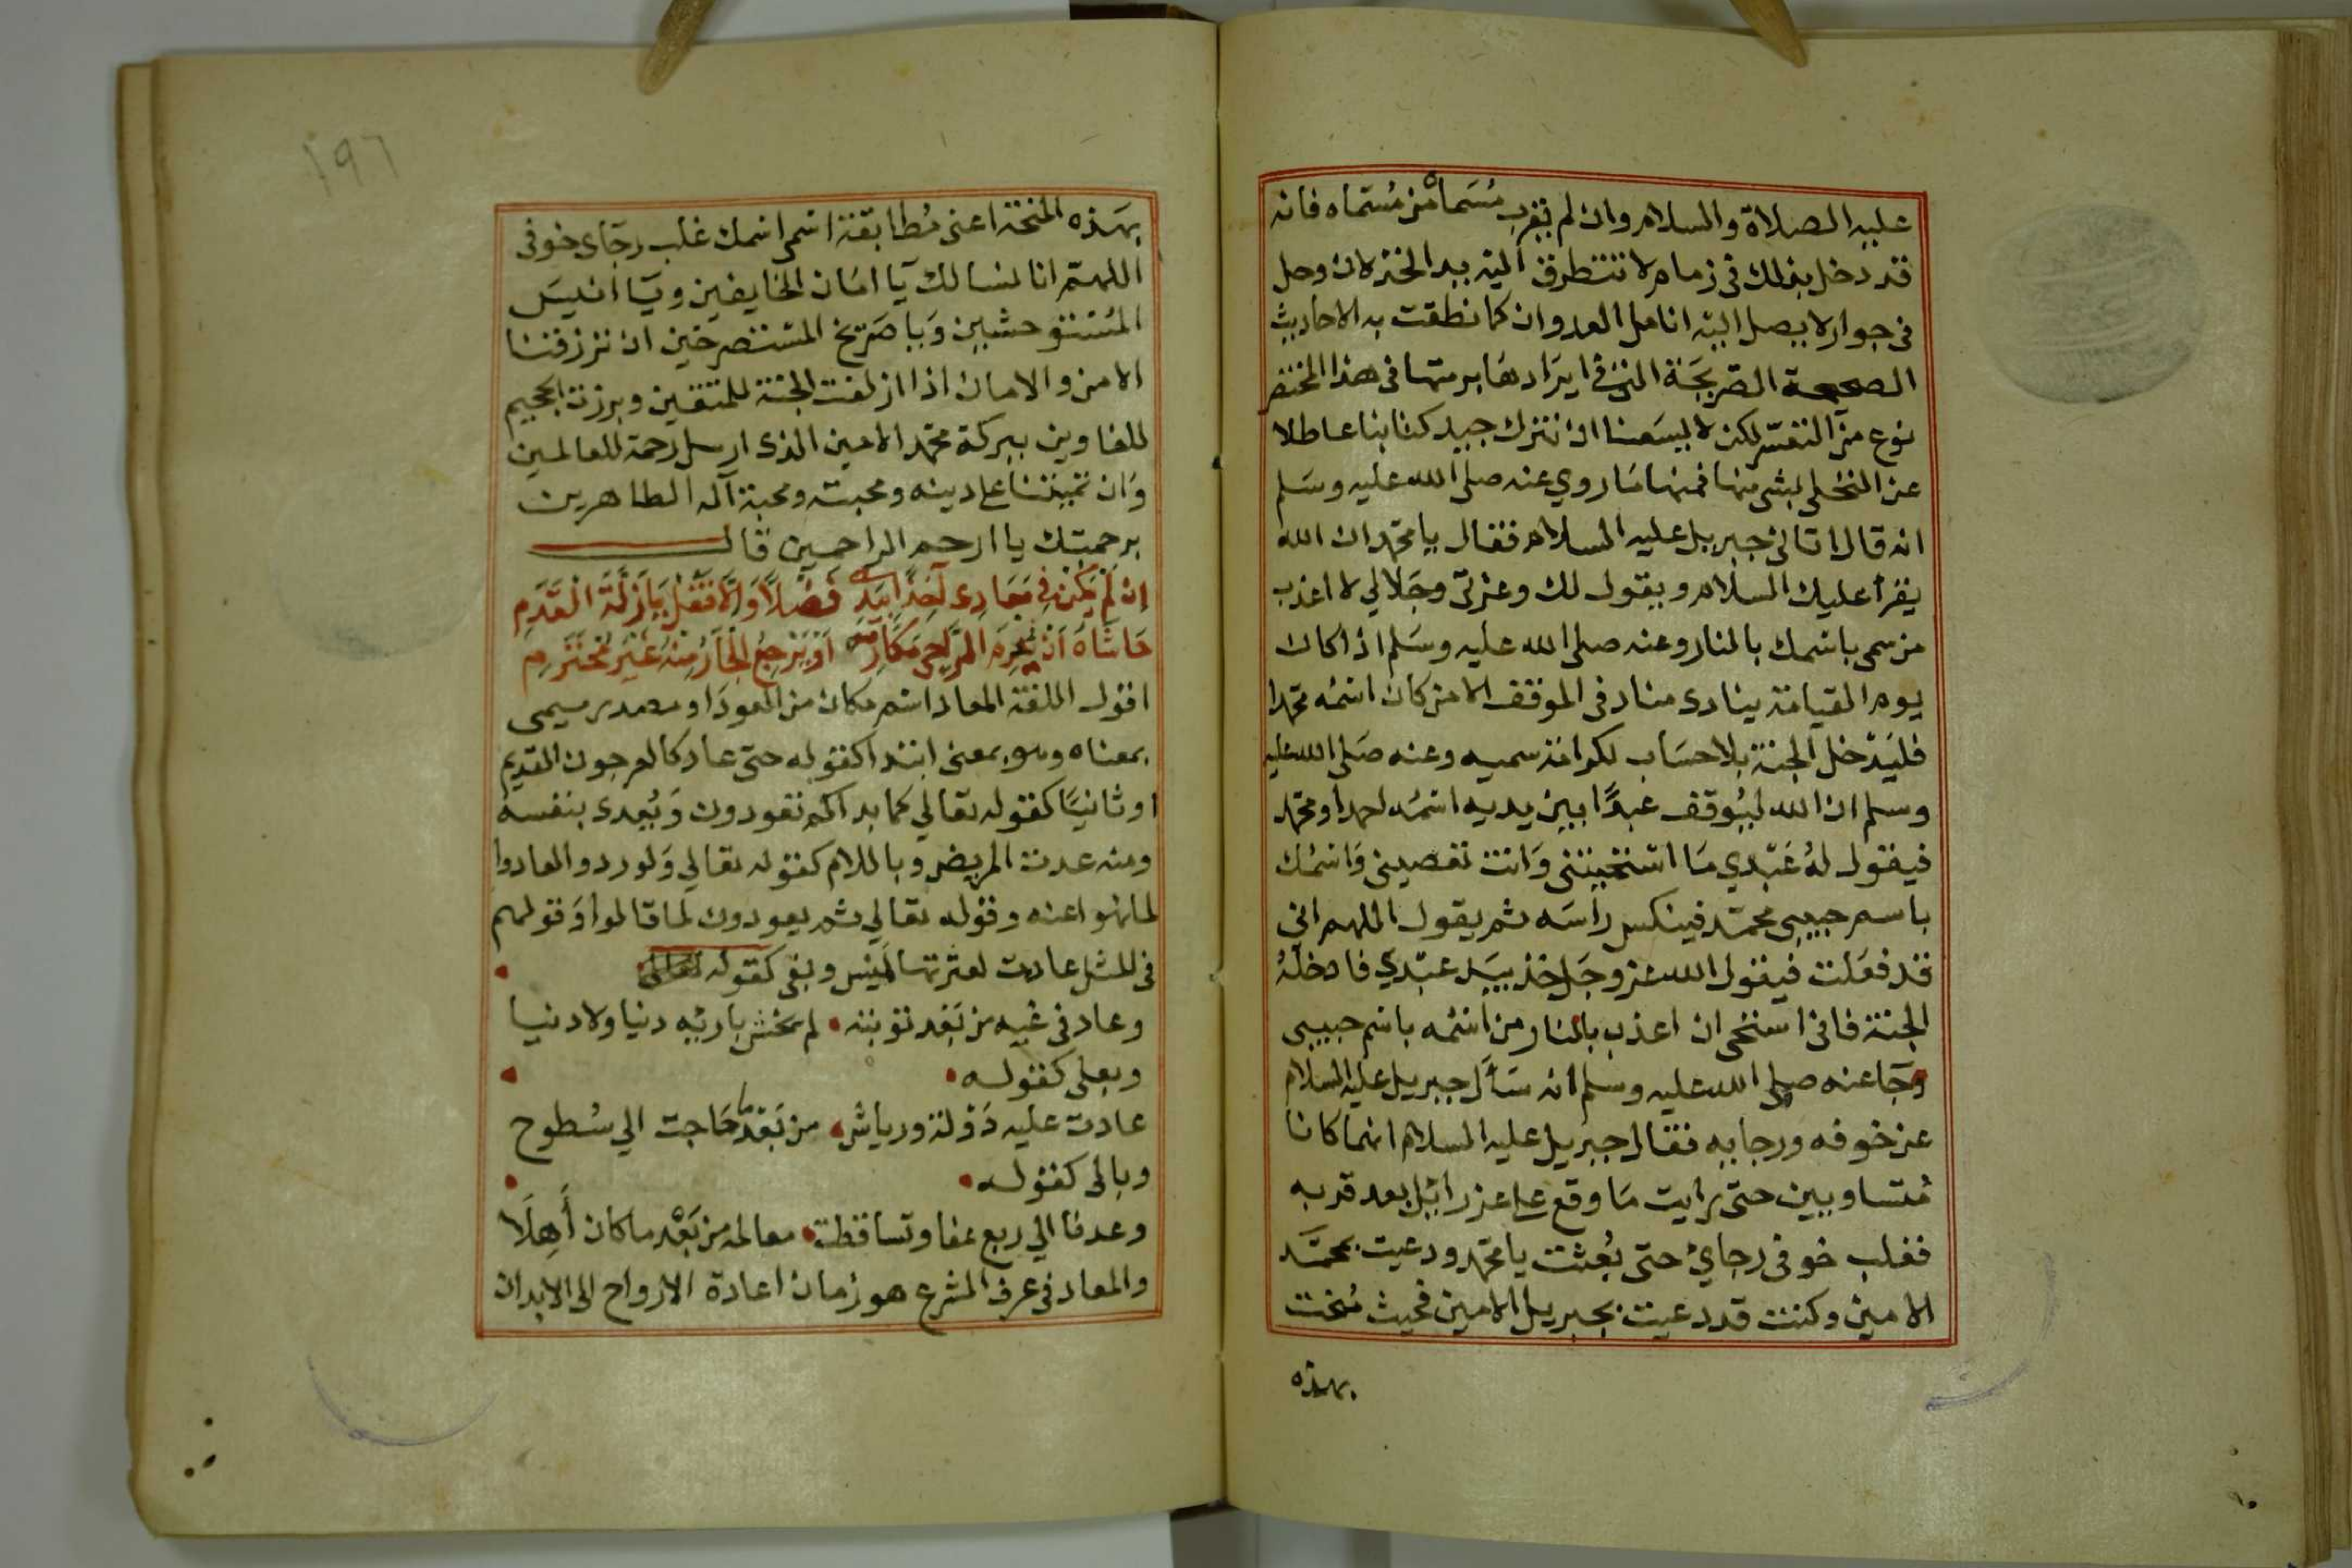 عليه الصلاة والسلام وان لم يقرب مُسَماهُ من مُسَماه فانه
قد دخل بذلك في زمام لا تتطرق اليه يد الخترلان وحل
في جوار لا يصل اليه انامل العدوان كما نطقت به الاحاديث
الصحيحة الصريحَة التي في ايرَادهَا برمتها في هذا المختصر
نوع من التعسّر لكن لا يسَعنا ان نترك جيد كتابنا عاطلا
عن التحلي بشي منها فمنها مَا روي عنه صلى الله عليه وسَلم
انه قال اتاني جبريل عليه السلام فقال يا محمد ان الله
يقرأ عليك السلام ويقول لك وعزتي وجَلالي لا اعذب
من سمى باسمك بالنار وعنه صلى الله عليه وسَلم اذا كان
يوم القيامة ينادى مناد في الموقف الا من كان اسمُه محمدا
فليَدْخل الجنة بلا حسَاب لكرامة سميه وعنه صَلى الله عليه
وسلم ان الله ليُوقف عبدًا بين يديه اسمُه احمد او محمد
فيقول لهُ عَبْدي مَا استحييتني وَانت تعصيني وَاسمُك
باسم حبيبي محمد فينكس رأسَه ثم يقول اللهم اني
قد فعَلت فيقول الله عز وجَل خذ بيَد عبْدي فادخلهُ
الجنة فاني استحي ان اعذب بالنار من اسمُه باسم حبيبي
وجَا عنه صلى الله عليه وسلم انه سَأل جبريل عليه السلام
عن خوفه ورجايه فقال جبريل عليه السلام انهما كانا
مُتساويين حتى رايت مَا وقع على عزرائيل بعد قربه
فغلب خوفي رجايَ حتى بُعثت يا محمد ودعيت بمحمَّد
الامين وكنت قد دعيت بجبريل الامين فحيث مُنحت
بهذه
١٩٦
بهَذه المنحة اعني مُطابقة اسمي اسمك غلب رجَاي خوفي
اللهمّ انا نسالك يَا امَان الخايفين ويَا انيسَ
المُستوحشين وَيا صَريخ المستصرخين ان ترزقنا
الامن والامان اذا ازلفت الجنة للمتقين وبرزت الجحيم
للغاوين ببركة محمّد الامين الذي ارسل رحمة للعالمين
وَان تميتنا على دينه ومحبته ومحبة آله الطاهرين
برحمتك يا ارحم الراحمين قال
اِن لم يَكُن في مَعَادِى آخِذًا بِيَدِي فَضْلاً وَاِلَّا فَقُل يَا زَلَّةَ الْقَدَمِ
حَاشَاهُ اَنْ يُحْرِمَ الرَّاجِى مَكَارِمَه اَوْ يَرْجِعُ الْجَارُ مِنْهُ غَيْرَ مُحْتَرَمِ
اقول اللغة المعاد اسم مكان من العود او مصدر ميمى
بمعناه وهو بمعنى ابتدا كقوله حتى عاد كالعرجون القديم
او ثانيًا كقوله تعالي كما بداكم تعودون وَيُعدى بنفسه
ومنه عدت المريض وباللام كقوله تعالي وَلو ردوا لعادوا
لما نهوا عنه وقوله تعالي ثم يعودون لما قالوا وَقولهم
في المثل عادت لعترتها لَميس وبفي كقوله
وعاد في غيه من بَعد توبته لم يخش باريه دنيا ولا دنيا
وبعلى كقوله
عادت عليه دَوْلة ورياش من بَعْد مَا حَاجت الي سُطوح
وبالى كقوله
وعدنا الي ربع عفا وتساقطت معالمه من بَعْد ما كان أَهِلَا
والمعاد في عرف الشرع هو زمان اعادة الارواح الى الابدان